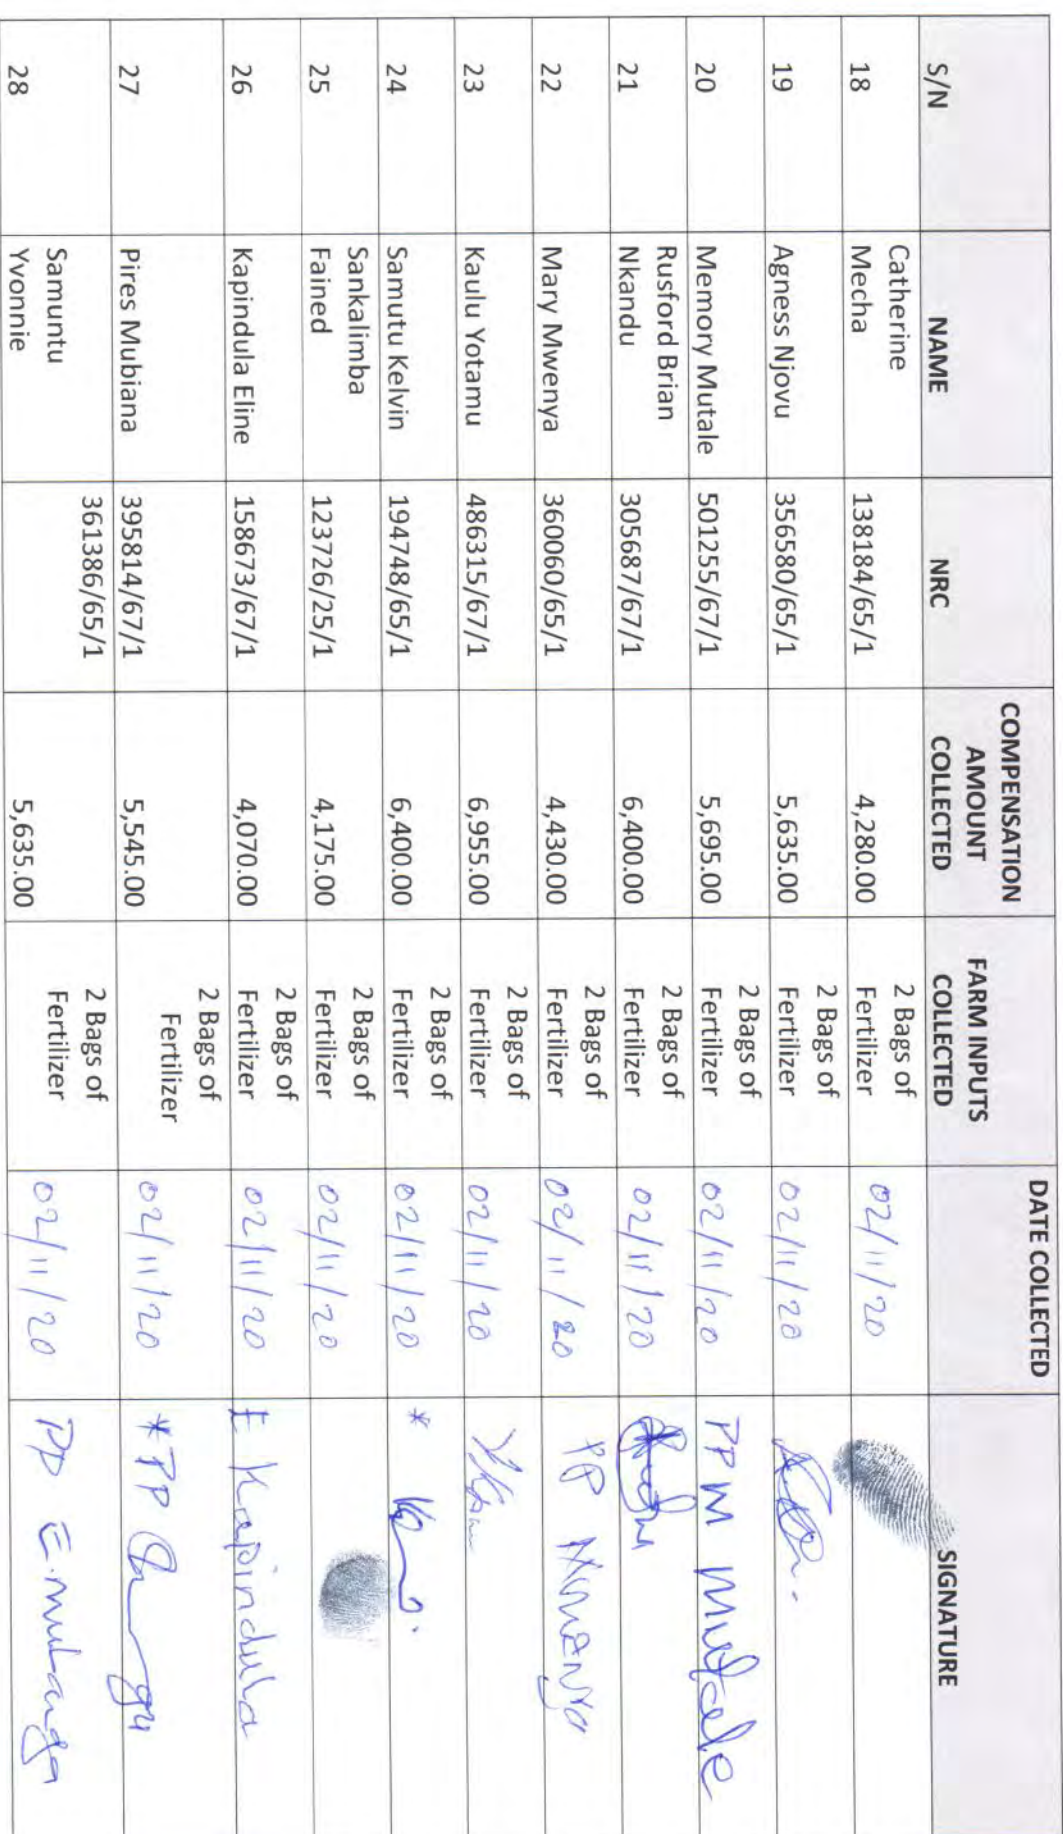 S/N NAME NRC COMPENSATION AMOUNT COLLECTED FARM INPUTS COLLECTED DATE COLLECTED SIGNATURE
18 Catherine Mecha 138184/65/1 4,280.00 2 Bags of Fertilizer 02/11/20
19 Agness Njovu 356580/65/1 5,635.00 2 Bags of Fertilizer 02/11/20
20 Memory Mutale 501255/67/1 5,695.00 2 Bags of Fertilizer 02/11/20 PP M Mutale
21 Rusford Brian Nkandu 305687/67/1 6,400.00 2 Bags of Fertilizer 02/11/20
22 Mary Mwenya 360060/65/1 4,430.00 2 Bags of Fertilizer 02/11/20 PP
23 Kaulu Yotamu 486315/67/1 6,955.00 2 Bags of Fertilizer 02/11/20
24 Samutu Kelvin 194748/65/1 6,400.00 2 Bags of Fertilizer 02/11/20 *
25 Sankalimba Fained 123726/25/1 4,175.00 2 Bags of Fertilizer 02/11/20
26 Kapindula Eline 158673/67/1 4,070.00 2 Bags of Fertilizer 02/11/20 E Kapindula
27 Pires Mubiana 395814/67/1 5,545.00 2 Bags of Fertilizer 02/11/20 *PP
28 Samuntu Yvonnie 361386/65/1 5,635.00 2 Bags of Fertilizer 02/11/20 PP E. mulanga